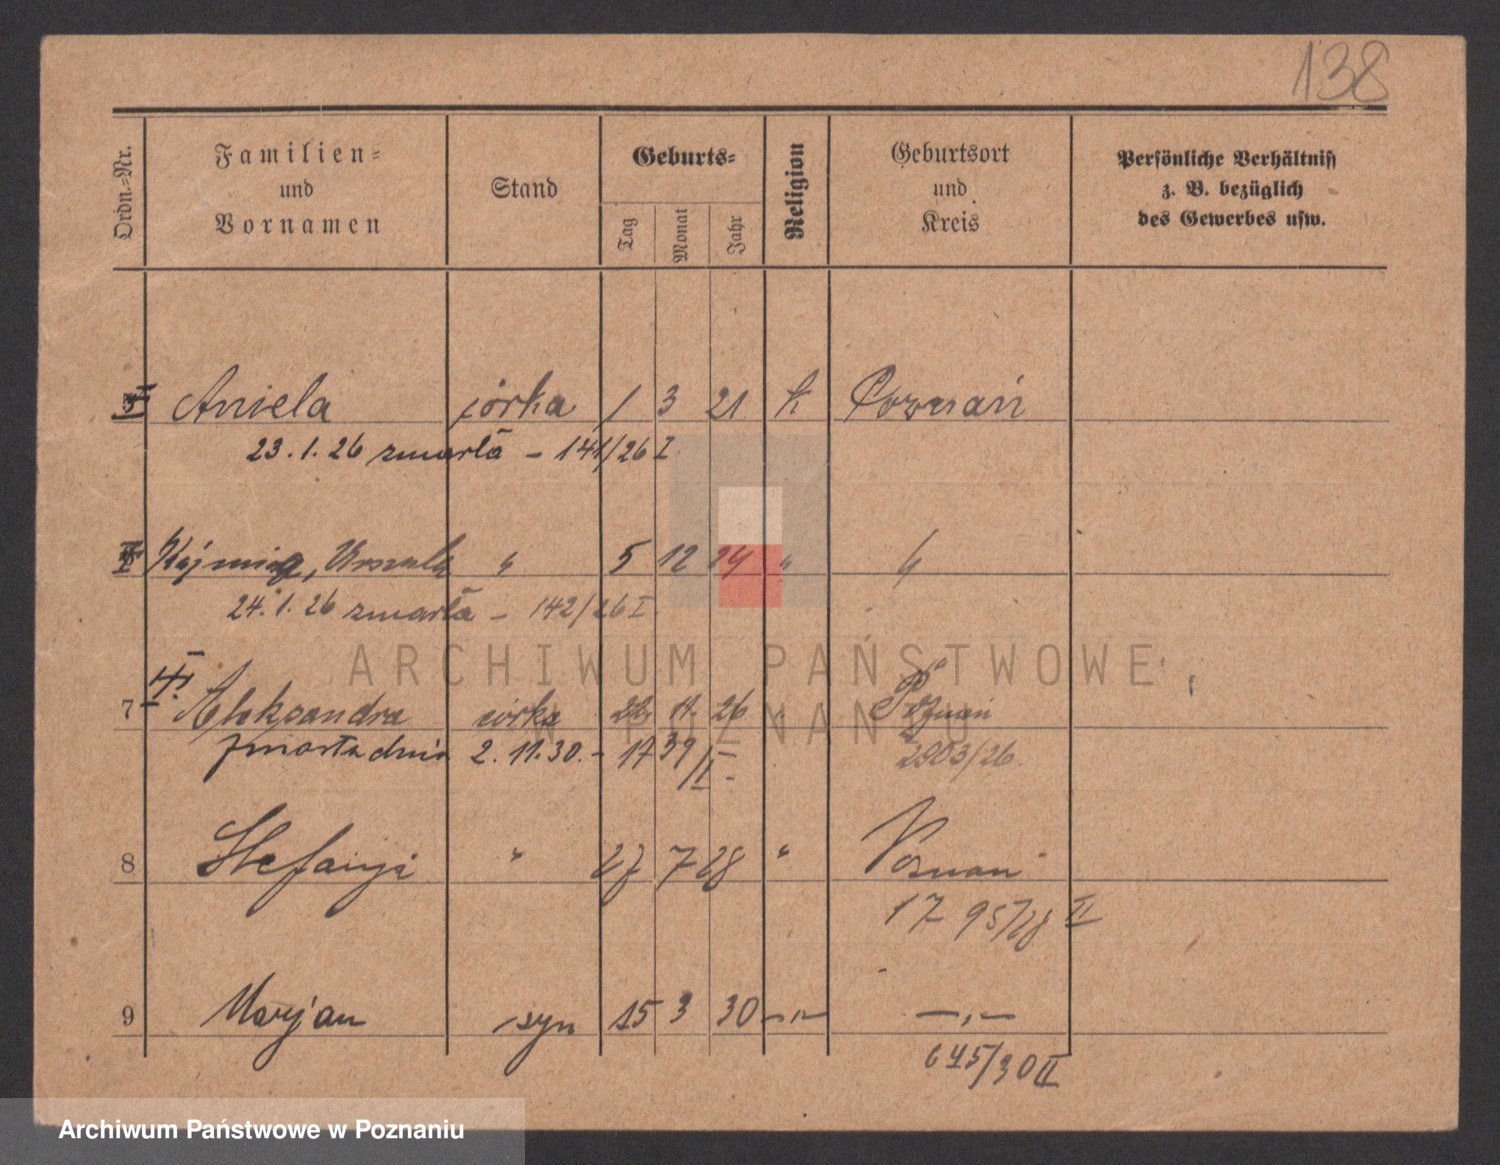 138
Ordn.-Nr.
Familien-
und
Vornamen
Stand
Geburts-
Tag
Monat
Jahr
Religion
Geburtsort
und
Kreis
Persönliche Verhältniss
z. B. bezüglich
des Gewerbes usw.
Aniela córka 1 3 21 k Poznań
23.1.26 zmarła - 141/26 I
Urszula " 5 12 24 " "
24.1.26 zmarła - 142/26 I
ARCHIWUM PAŃSTWOWE
W POZNANIU
7 Aleksandra córka 26 11 26 " Poznań
zmarła dnia 2.11.30. - 1739/II - 2903/26
8 Stefanja " 27 7 28 " Poznań
1795/28 II
9 Marjan syn 15 3 30 -„- -„-
645/30 II
Archiwum Państwowe w Poznaniu